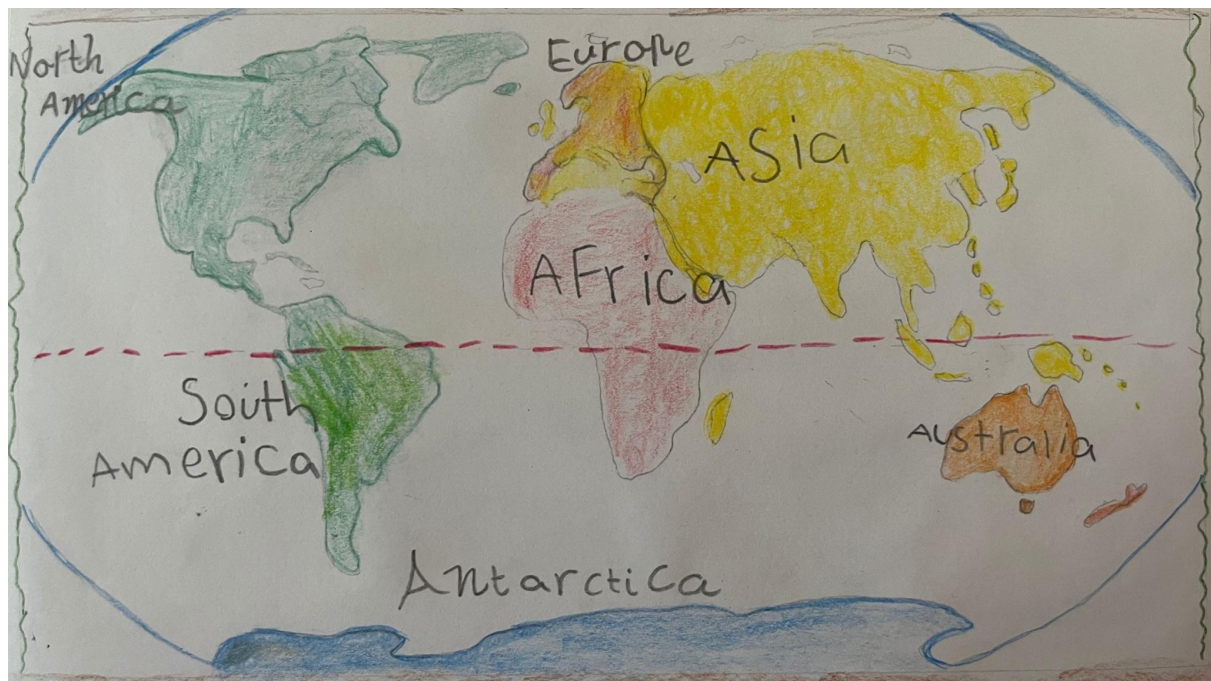 North
America
Europe
ASia
AFrica
South
America
Australia
Antarctica